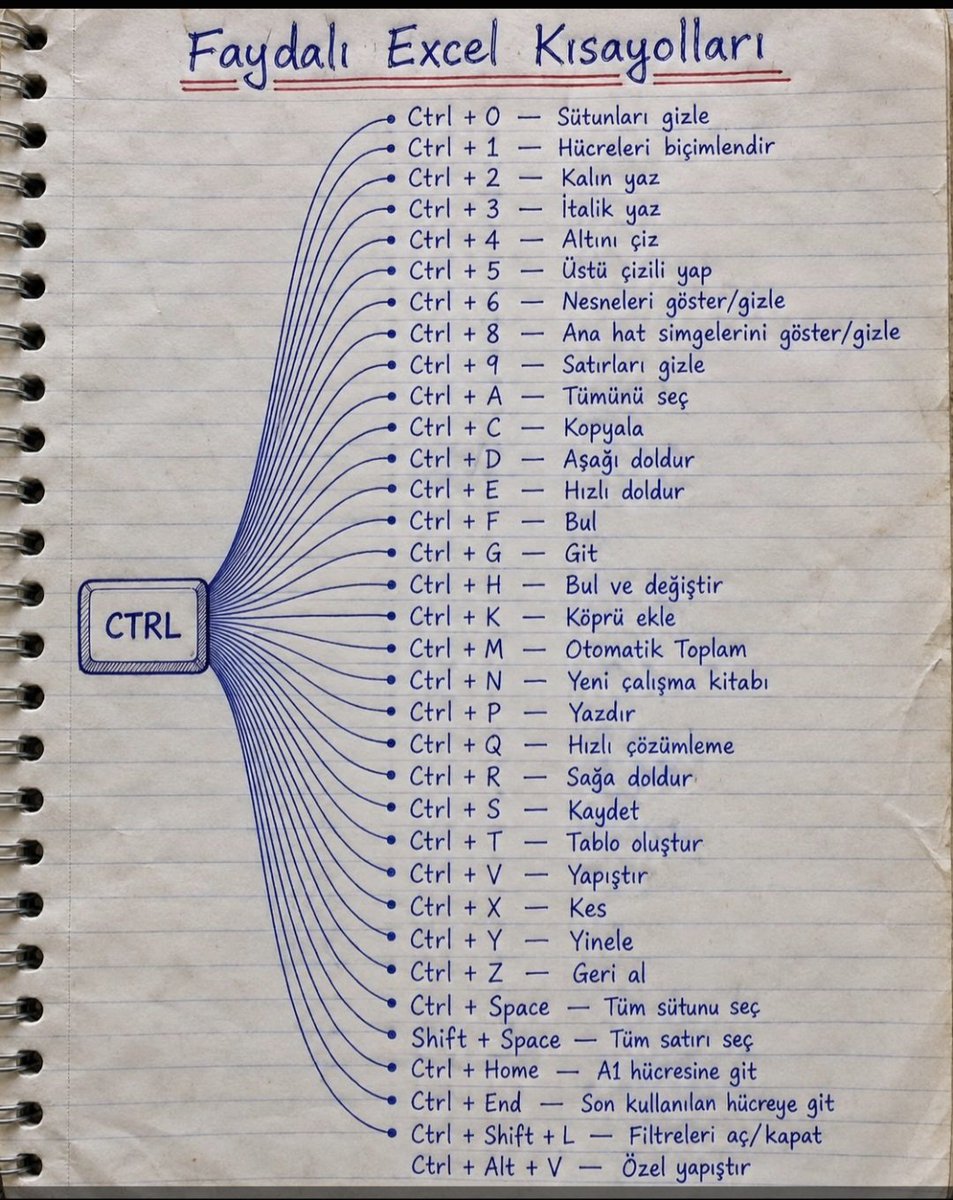 Faydalı Excel Kısayolları
Ctrl + 0 — Sütunları gizle
Ctrl + 1 — Hücreleri biçimlendir
Ctrl + 2 — Kalın yaz
Ctrl + 3 — İtalik yaz
Ctrl + 4 — Altını çiz
Ctrl + 5 — Üstü çizili yap
Ctrl + 6 — Nesneleri göster/gizle
Ctrl + 8 — Ana hat simgelerini göster/gizle
Ctrl + 9 — Satırları gizle
Ctrl + A — Tümünü seç
Ctrl + C — Kopyala
Ctrl + D — Aşağı doldur
Ctrl + E — Hızlı doldur
Ctrl + F — Bul
Ctrl + G — Git
Ctrl + H — Bul ve değiştir
CTRL
Ctrl + K — Köprü ekle
Ctrl + M — Otomatik Toplam
Ctrl + N — Yeni çalışma kitabı
Ctrl + P — Yazdır
Ctrl + Q — Hızlı çözümleme
Ctrl + R — Sağa doldur
Ctrl + S — Kaydet
Ctrl + T — Tablo oluştur
Ctrl + V — Yapıştır
Ctrl + X — Kes
Ctrl + Y — Yinele
Ctrl + Z — Geri al
Ctrl + Space — Tüm sütunu seç
Shift + Space — Tüm satırı seç
Ctrl + Home — A1 hücresine git
Ctrl + End — Son kullanılan hücreye git
Ctrl + Shift + L — Filtreleri aç/kapat
Ctrl + Alt + V — Özel yapıştır